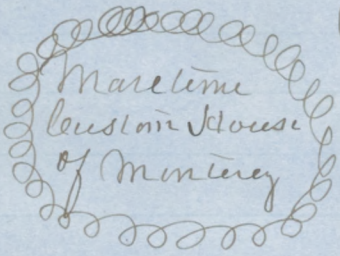 Maretime
Custom House
of Monterey